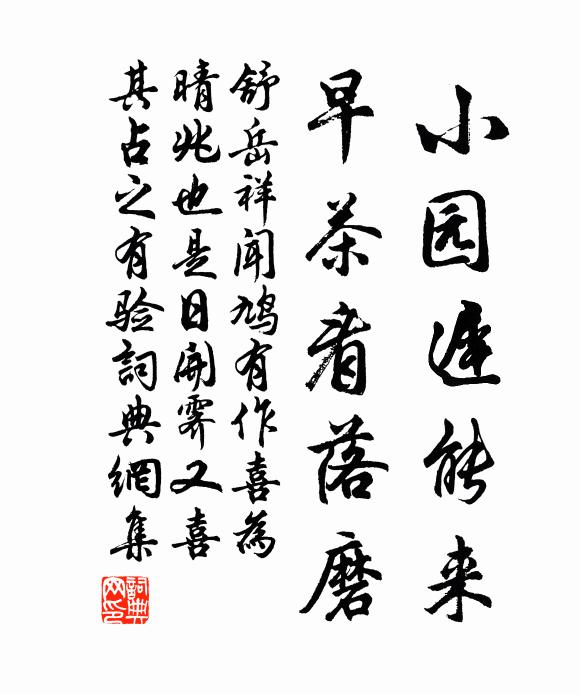 小园遲能来
早茶看落磨
舒岳祥聞鳩有作喜為
晴兆也是日開霽又喜
其占之有验詞典網集
詞典網印